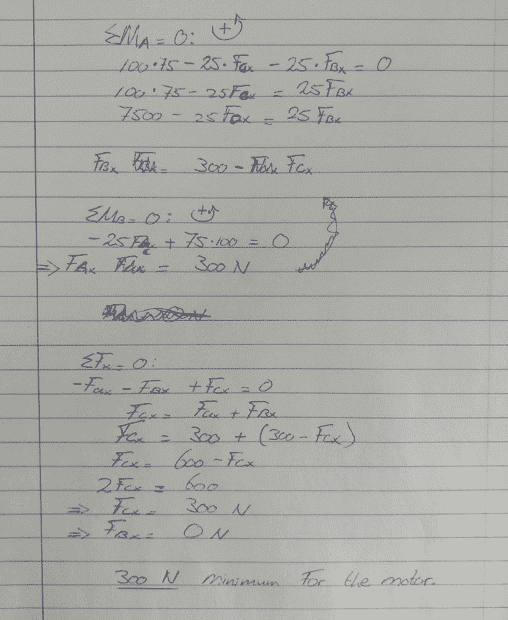 ΣMA = 0: ↺+
100·75 - 25·Fcx - 25·FBx = 0
100·75 - 25Fcx = 25FBx
7500 - 25Fcx = 25FBx
FBx = 300 - Fcx
ΣMB = 0: ↺+
-25FAx + 75·100 = 0
=> FAx = 300 N
ΣFx = 0:
-Fax - FBx + Fcx = 0
Fcx = Fax + FBx
Fcx = 300 + (300 - Fcx)
Fcx = 600 - Fcx
2Fcx = 600
=> Fcx = 300 N
=> FBx = 0 N
300 N minimum For the motor.